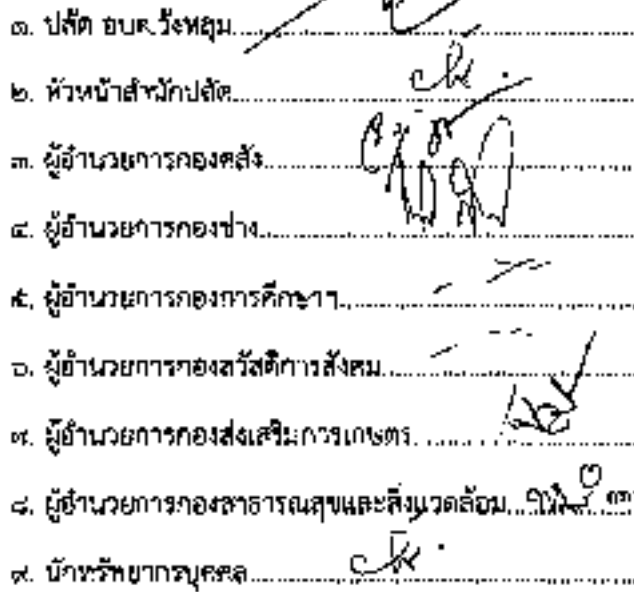 ๑. ปลัด อบต.วังหลุม
๒. หัวหน้าสำนักปลัด
๓. ผู้อำนวยการกองคลัง
๔. ผู้อำนวยการกองช่าง
๕. ผู้อำนวยการกองการศึกษาฯ
๖. ผู้อำนวยการกองสวัสดิการสังคม
๗. ผู้อำนวยการกองส่งเสริมการเกษตร
๘. ผู้อำนวยการกองสาธารณสุขและสิ่งแวดล้อม
๙. นักทรัพยากรบุคคล